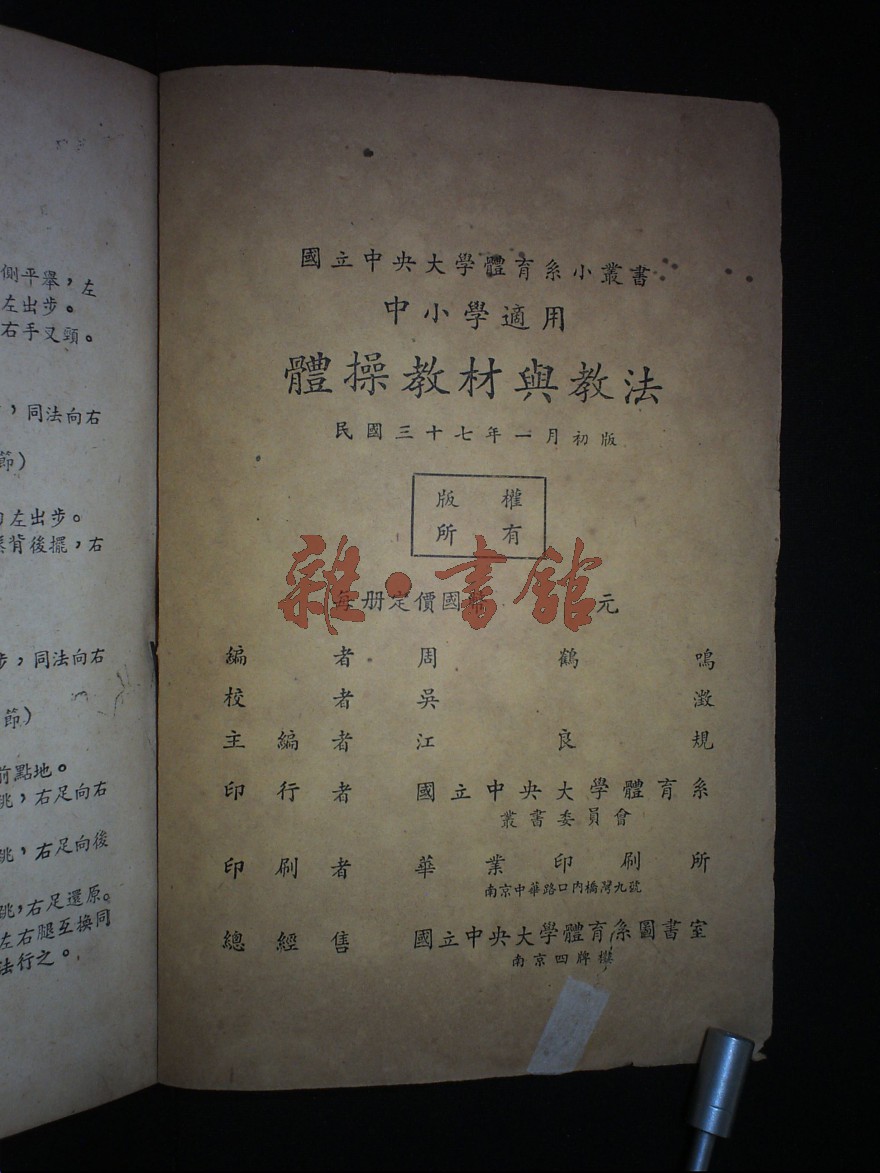 國立中央大學體育系小叢書
中小學適用
體操教材與教法
民國三十七年一月初版
版權
所有
每册定價國幣 元
雜·書館
編者 周鶴鳴
校者 吳澂
主編者 江良規
印行者 國立中央大學體育系
叢書委員會
印刷者 華業印刷所
南京中華路口內橋灣九號
總經售 國立中央大學體育系圖書室
南京四牌樓
側平舉,左
左出步。
右手叉頸。
,同法向右
節)
左出步。
背後擺,右
步,同法向右
節)
前點地。
跳,右足向右
跳,右足向後
跳,右足還原。
左右腿互換同
法行之。